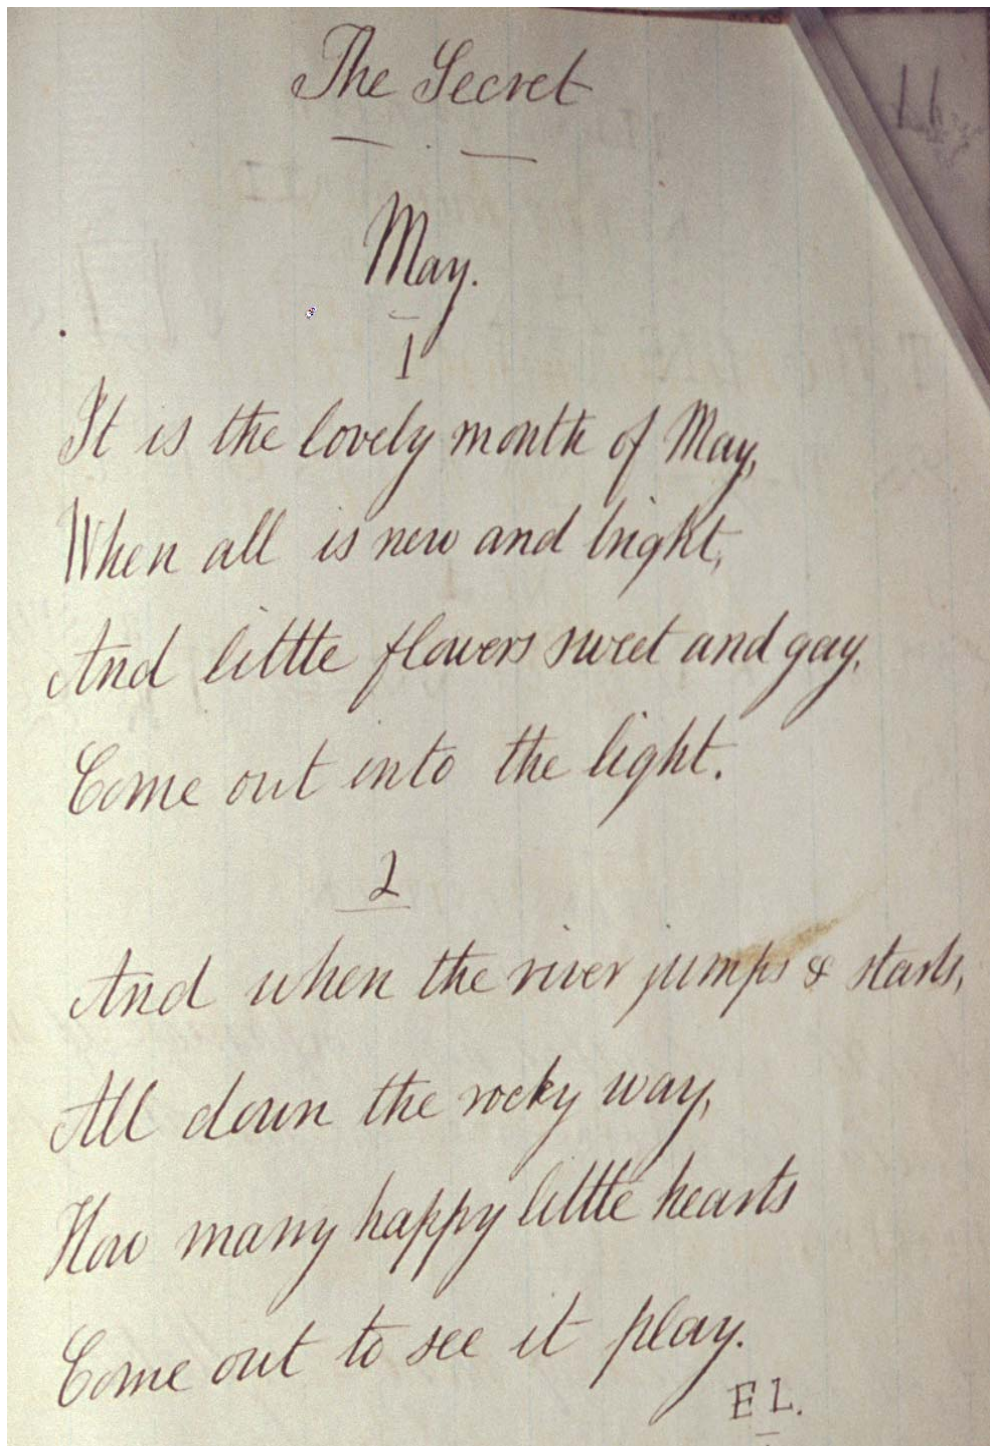 The Secret
May.
1
It is the lovely month of May,
When all is new and bright,
And little flowers sweet and gay,
Come out into the light.
2
And when the river jumps & starts,
All down the rocky way,
How many happy little hearts
Come out to see it play.
E L.